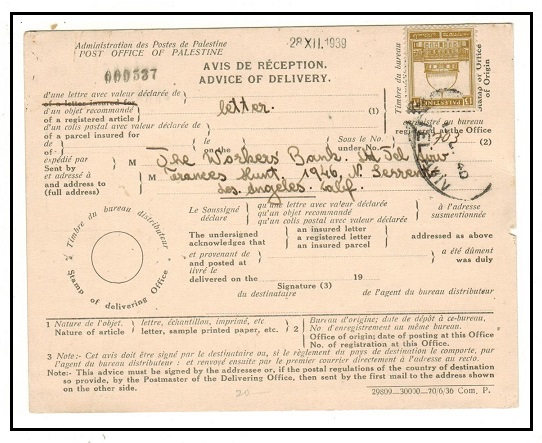 Administration des Postes de Palestine
POST OFFICE OF PALESTINE
28 XII. 1939
000537
AVIS DE RÉCEPTION.
ADVICE OF DELIVERY.
Timbre du bureau
Stamp or Office
of Origin
PALESTINE
d'une lettre avec valeur déclarée de
of a letter insured for
letter. (1)
d'un objet recommandé
of a registered article
enregistré au bureau
registered at the Office
d'un colis postal avec valeur déclarée de
of a parcel insured for
de
of
le
on the
Sous le No.
under No.
702 (2)
TEL AVIV
expédié par
Sent by
M The Workers' Bank. Ltd Tel Aviv
et adressé à
and address to
(full address)
M Frances Hunt. 1946, N. Serrano
Los Angeles. Calif.
Timbre du bureau distributeur
Stamp of delivering Office
Le Soussigné
déclare
qu'une lettre avec valeur déclarée
qu'un objet recommandé
qu'un colis postal avec valeur déclarée
à l'adresse
susmentionnée
The undersigned
acknowledges that
an insured letter
a registered letter
an insured parcel
addressed as above
et provenant de
and posted at
a été dûment
was duly
livré le
delivered on the 19
Signature (3)
du destinataire
de l'agent du bureau distributeur
1 Nature de l'objet,
Nature of article
lettre, échantillon, imprimé, etc
letter, sample printed paper, etc.
2 Bureau d'origine; date de dépôt à ce-bureau,
No. d'enregistrement au même bureau.
Office of origin; date of posting at this Office
No. of registration at this Office.
3 Note:- Cet avis doit être signé par le destinataire ou, si le règlement du pays de destination le comporte, par
l'agent du bureau distributeur: et renvoyé ensuite par le premier courrier directement à l'adresse au recto.
Note:- This advice must be signed by the addressee or, if the postal regulations of the country of destination
so provide, by the Postmaster of the Delivering Office, then sent by the first mail to the address shown
on the other side.
20
29809—30000—70/6/36 Com. P.